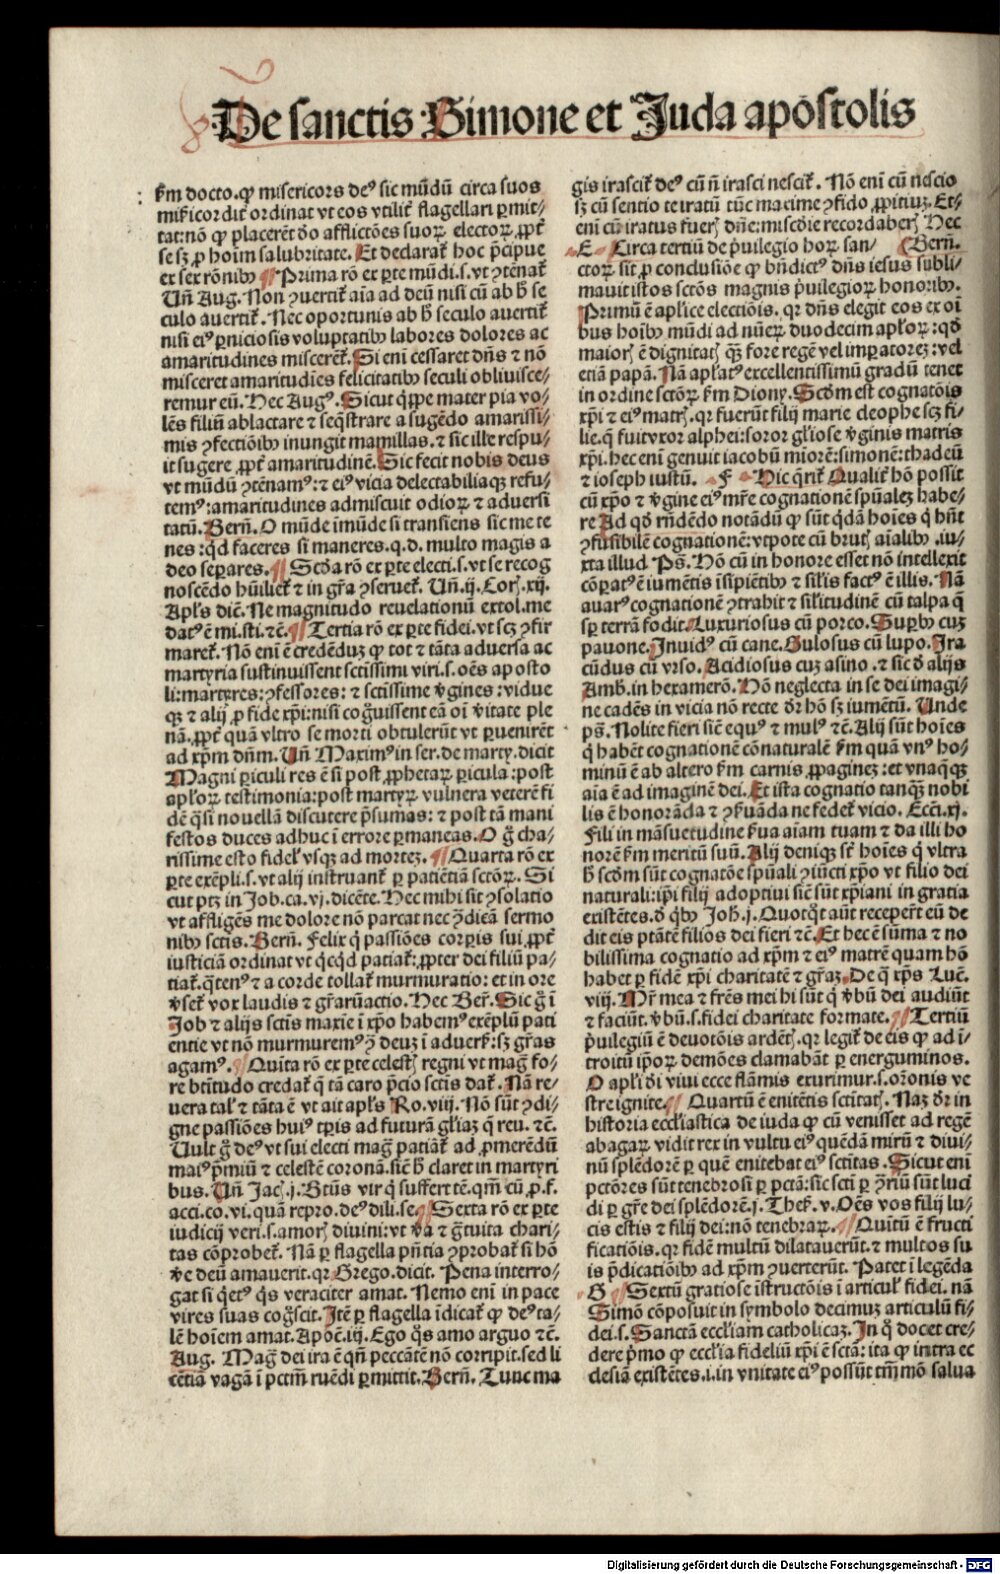 De sanctis Simone et Juda apostolis
s̃m docto. ꝙ misericors deꝰ sic mūdū circa suos
mīicordit̃ ordinat vt eos vtilit̃ flagellari ꝑmit/
tat: nō ꝙ placerēt ꝺo afflictōes suoꝝ electoꝝ, ꝓpt̃
se sꝫ ꝓ hoīm salubritate. Et declarat̃ hoc p̄cipue
et sex rōnibꝰ ¶ Prima rō ex ꝑte mūdi. s. vt ꝯtēnat̃
Vñ Aug. Non ꝯuertit̃ aīa ad deū nisi cū ab h̄ se
culo auertit̃. Nec oportunis ab h̄ seculo auertit̃
nisi eiꝰ ꝑniciosis voluptatibꝰ labores dolores ac
amaritudines miscerēt̃. Si eni cessaret dñs ⁊ nō
misceret amaritudīes felicitatibꝰ seculi obliuisce/
remur eū. Hec Augꝰ. Sicut q̄ꝑe mater pia vo/
lēs filiū ablactare ⁊ seq̄strare a sugēdo amarissi/
mis ꝯfectiōibꝰ inungit mamillas. ⁊ sic ille respu/
it sugere ꝓpt̃ amaritudinē. Sic fecit nobis deus
vt mūdū ꝯtēnamꝰ: ⁊ eiꝰ vicia delectabiliaqꝫ refu/
temꝰ: amaritudines admiscuit odioꝝ ⁊ aduersi
tatū. Berñ. O mūde īmūde si transiens sic me te
nes: q̄d faceres si maneres. q. d. multo magis a
deo seꝑares. ¶ Scd̃a rō ex ꝑte electi. s. vt se recog
noscēdo hūiliet̃ ⁊ in gr̄a ꝯseruet̃. Vñ. ij. Corꝭ. xij.
Apl̄s dic̄. Ne magnitudo reuelationū extol. me
datꝰ ē mi. sti. ⁊c̄. ¶ Tertia rō ex ꝑte fidei. vt scꝫ ꝯfir
maret̃. Nō eni ē credēdūꝫ ꝙ tot ⁊ tāta aduersa ac
martyria sustinuissent sctīssimi viri. s. oēs aposto
li: martyres: ꝯfessores: ⁊ sctīssime v̄gines: vidue
qꝫ ⁊ alij ꝓ fide xp̄i: nisi cog̃uissent eā oī v̄itate ple
nā. ꝓpt̃ quā vltro se morti obtulerūt vt ꝑuenirēt
ad xp̄m dñm. Vñ Maximꝰ in ser. de marty. dicit
Magni ꝑiculi res ē si post ꝓphetaꝝ ꝑicula: post
apl̄oꝝ testimonia: post martyꝝ vulnera veterē fi
dē q̄si nouellā discutere p̄sumas: ⁊ post tā mani
festos duces adhuc ī errore ꝑmaneas. O g̃ cha/
rissime esto fidel̃ vsqꝫ ad morteꝫ. ¶ Quarta rō ex
ꝑte exēpli. s. vt alij instruant̃ ꝑ patiētiā sctōꝝ. Si
cut ptꝫ in Job. ca. vj. dicēte. Hec mihi sit ꝯsolatio
vt affligēs me dolore nō parcat nec ꝯ̄dicā sermo
nibꝰ sctis. Berñ. Felix q̄ passiōes corꝑis sui ꝓpt̃
iusticiā ordinat vt q̄cq̄d patiat̃: ꝓpter dei filiū pa/
tiat̃. q̄tenꝰ ⁊ a corde tollat̃ murmuratio: et in ore
v̄set̃ vox laudis ⁊ gr̄arūactio. Hec Ber̃. Sic g̃ ī
Job ⁊ alijs sctis maxīe ī xp̄o habemꝰ exēplū pati
entie vt nō murmuremꝰ ꝯ̄ deuꝫ ī aduers̃: sꝫ gr̄as
agamꝰ. ¶ Quīta rō ex ꝑte celestꝭ regni vt mag̃ fo/
re btītudo credat̃ q̄ tā caro p̄cio sctis dat̃. Nā re/
uera tal̃ ⁊ tāta ē vt ait apl̄s Ro. viij. Nō sūt ꝯdi/
gne passiōes huiꝰ tꝑis ad futurā gl̄iaꝫ q̄ reu. ⁊c̄.
Uult g̃ deꝰ vt sui electi mag̃ patiāt̃ ad ꝓmerēdū
maiꝰ p̄miū ⁊ celestē coronā. sic̄ h̄ claret in martyri
bus. Vñ Jacꝭ. j. Btūs vir q̄ suffert tē. qm̄ cū ꝓ. f.
acci. co. vi. quā repro. deꝰ dili. se. ¶ Sexta rō ex ꝑte
iudicij veri. s. amorꝭ diuini: vt v̄a ⁊ g̃tuita chari/
tas cōprobet̃. Nā ꝑ flagella pn̄tia ꝯprobat̃ si hō
v̄e deū amauerit. qꝛ Grego. dicit. Pena interro/
gat si q̄etꝰ q̄s veraciter amat. Nemo eni in pace
vires suas cog̃scit. Jtē ꝑ flagella īdicat̃ ꝙ deꝰ ta/
lē hoīem amat. Apoc̄. iij. Ego q̄s amo arguo ⁊c̄.
Aug. Mag̃ dei ira ē qñ peccātē nō corripit. sed li
cētiā vagā ī pctm̄ ruēdi ꝑmittit. Berñ. Tunc ma
gis irascit̃ deꝰ cū ñ irasci nescit̃. Nō eni cū nescio
sꝫ cū sentio te iratū tūc maxime ꝯfido ꝓpitiuꝫ. Et/
eni cū iratus fuerꝭ dñe: mīscdie recordaberꝭ Hec
E Circa tertiū de p̄uilegio hoꝝ san/ (Berñ.
ctoꝝ sit ꝓ conclusiōe ꝙ bn̄dictꝰ dñs iesus subli/
mauit istos sctōs magnis p̄uilegioꝝ honoribꝰ.
Primū ē apl̄ice electiōis. qꝛ dñs elegit eos ex oī
bus hoībꝰ mūdi ad nūeꝝ duodecim apl̄oꝝ: qd̄
maiorꝭ ē dignitatꝭ qꝫ fore regē vel imꝑatoreꝫ: vel
etiā papā. Nā apl̄atꝰ excellentissimū gradū tenet
in ordine sctōꝝ s̃m Diony. Scd̄m est cognatōis
xp̄i ⁊ eiꝰ matrꝭ. qꝛ fuerūt filij marie cleophe scꝫ fi/
lie. q̄ fuit vxor alphei: soror gl̄iose v̄ginis matris
xp̄i. hec eni genuit iacobū miorē: simonē: thadeū
⁊ ioseph iustū. F Hic q̄rit̃ Qualit̃ hō possit
cū xp̄o ⁊ v̄gine eiꝰ mr̄e cognationē spūaleꝫ habe/
re Ad qd̄ rn̄dēdo notādū ꝙ sūt q̄dā hoīes q̄ hn̄t
ꝯfusibilē cognationē: vtpote cū brutꝭ aīalibꝰ. iu/
xta illud Ps̄. Hō cū in honore esset nō intellexit
cōꝑatꝰ ē iumētis īsipiētibꝰ ⁊ sil̄is factꝰ ē illis. Nā
auarꝰ cognationē ꝯtrahit ⁊ sil̄itudinē cū talpa q̄
sꝑ terrā fodit. Luxuriosus cū porco. Suꝑbꝰ cuꝫ
pauone. Jnuidꝰ cū cane. Gulosus cū lupo. Jra
cūdus cū vrso. Acidiosus cuꝫ asino. ⁊ sic ꝺ alijs
Amb̄. in hexamerō. Hō neglecta in se dei imagi/
ne cadēs in vicia nō recte ꝺr hō sꝫ iumētū. Unde
ps̄. Nolite fieri sic̄ equꝰ ⁊ mulꝰ ⁊c̄. Alij sūt hoīes
q̄ habēt cognationē cōnaturalē s̃m quā vnꝰ ho/
minū ē ab altero s̃m carnis ꝓpagineꝫ: et vnaqꝫqꝫ
aīa ē ad imaginē dei. Et ista cognatio tanqꝫ nobi
lis ē honorāda ⁊ ꝯs̃uāda ne fedet̃ vicio. Ecc̄i. xj.
Fili in māsuetudine s̃ua aīam tuam ⁊ da illi ho
norē s̃m meritū suū. Alij deniqꝫ st̄ hoīes q̄ vltra
h̄ scd̄m sūt cognatōe spūali ꝯiūcti xp̄o vt filio dei
naturali: ip̄i filij adoptiui sic̄ sūt xp̄iani in gratia
existētes. ꝺ q̄bꝰ Joh̄. j. Quotq̄t aūt receper̃t eū de
dit eis ptātē filios dei fieri ⁊c̄. Et hec ē sūma ⁊ no
bilissima cognatio ad xp̄m ⁊ eiꝰ matrē quam hō
habet ꝑ fidē xp̄i charitatē ⁊ gr̄aꝫ. De q̄ xp̄s Luc̄.
viij. Mr̄ mea ⁊ fr̄es mei hi sūt q̄ v̄bū dei audiūt
⁊ faciūt. v̄bū. s. fidei charitate formate. ¶ Tertiū
p̄uilegiū ē deuotōis ardētꝭ. qꝛ legit̃ de eis ꝙ ad ī/
troitū ip̄oꝝ demōes clamabāt ꝑ energuminos.
O apl̄i ꝺi viui ecce flāmis exurimur. s. orōnis ve
stre ignite. ¶ Quartū ē enitētis sctītatꝭ. Naꝫ ꝺr in
historia eccl̄iastica de iuda ꝙ cū venisset ad regē
abagaꝝ vidit rex in vultu eiꝰ quēdā mirū ⁊ diui/
nū splēdorē ꝑ quē enitebat eiꝰ sctītas. Sicut eni
pctōres sūt tenebrosi ꝑ pctā: sic scti ꝑ ꝯ̄riū sūt luci
di ꝑ gr̄e dei splēdorē. j. Thes̃. v. Oēs vos filij lu/
cis estis ⁊ filij dei: nō tenebraꝝ. ¶ Quītū ē fructi
ficatiōis. qꝛ fidē multū dilatauerūt. ⁊ multos su
is p̄dicatiōibꝰ ad xp̄m ꝯuerterūt. Patet ī legēda
G ¶ Sextū gratiose īstructōis ī articul̃ fidei. nā
Simō cōposuit in symbolo decimuꝫ articulū fi/
dei. s. Sanctā eccl̄iam catholicaꝫ. Jn q̄ docet cre/
dere p̄mo ꝙ eccl̄ia fideliū xp̄i ē sctā: ita ꝙ intra ec
clesiā existētes. i. in vnitate eiꝰ possūt tm̄mō salua
Digitalisierung gefördert durch die Deutsche Forschungsgemeinschaft - DFG